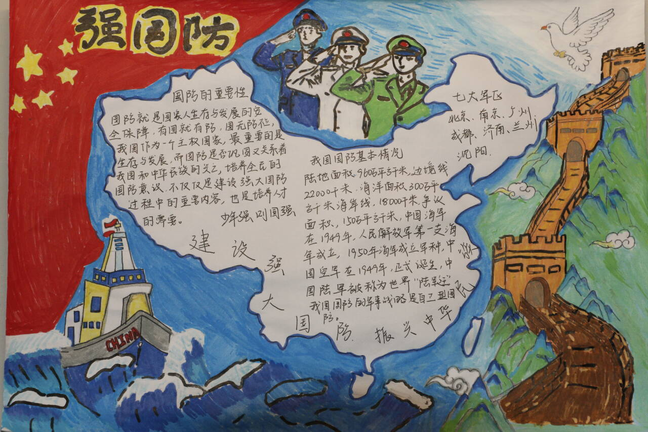 强国防
国防的重要性
国防就是国家人生存与发展的安
全保障,有国就有防,国无防不立,
我国作为一个主权国家,最重要的是
生存与发展,而国防是否巩固又关系着
我国和中华民族的兴亡,培养全民的
国防意识,不仅仅是建设强大国防
过程中的重要内容,也是培养人才
的需要。 少年强,则国强
七大军区
北京、南京、广州
成都、济南、兰州
沈阳.
我国国防基本情况
陆地面积960万平方千米,边境线
22000千米,海洋面积300多万
千米海岸线,18000千米,争议
面积,150多万千米,中国海军
在1949年,人民解放军第一支海
军成立,1950年海军成立军种,中
国空军在1949年,正式诞生,中
国陆军被称为世界“陆军
我国国防的军事战略是自卫型国
防。
建设强大国防 振兴中华民族
CHINA